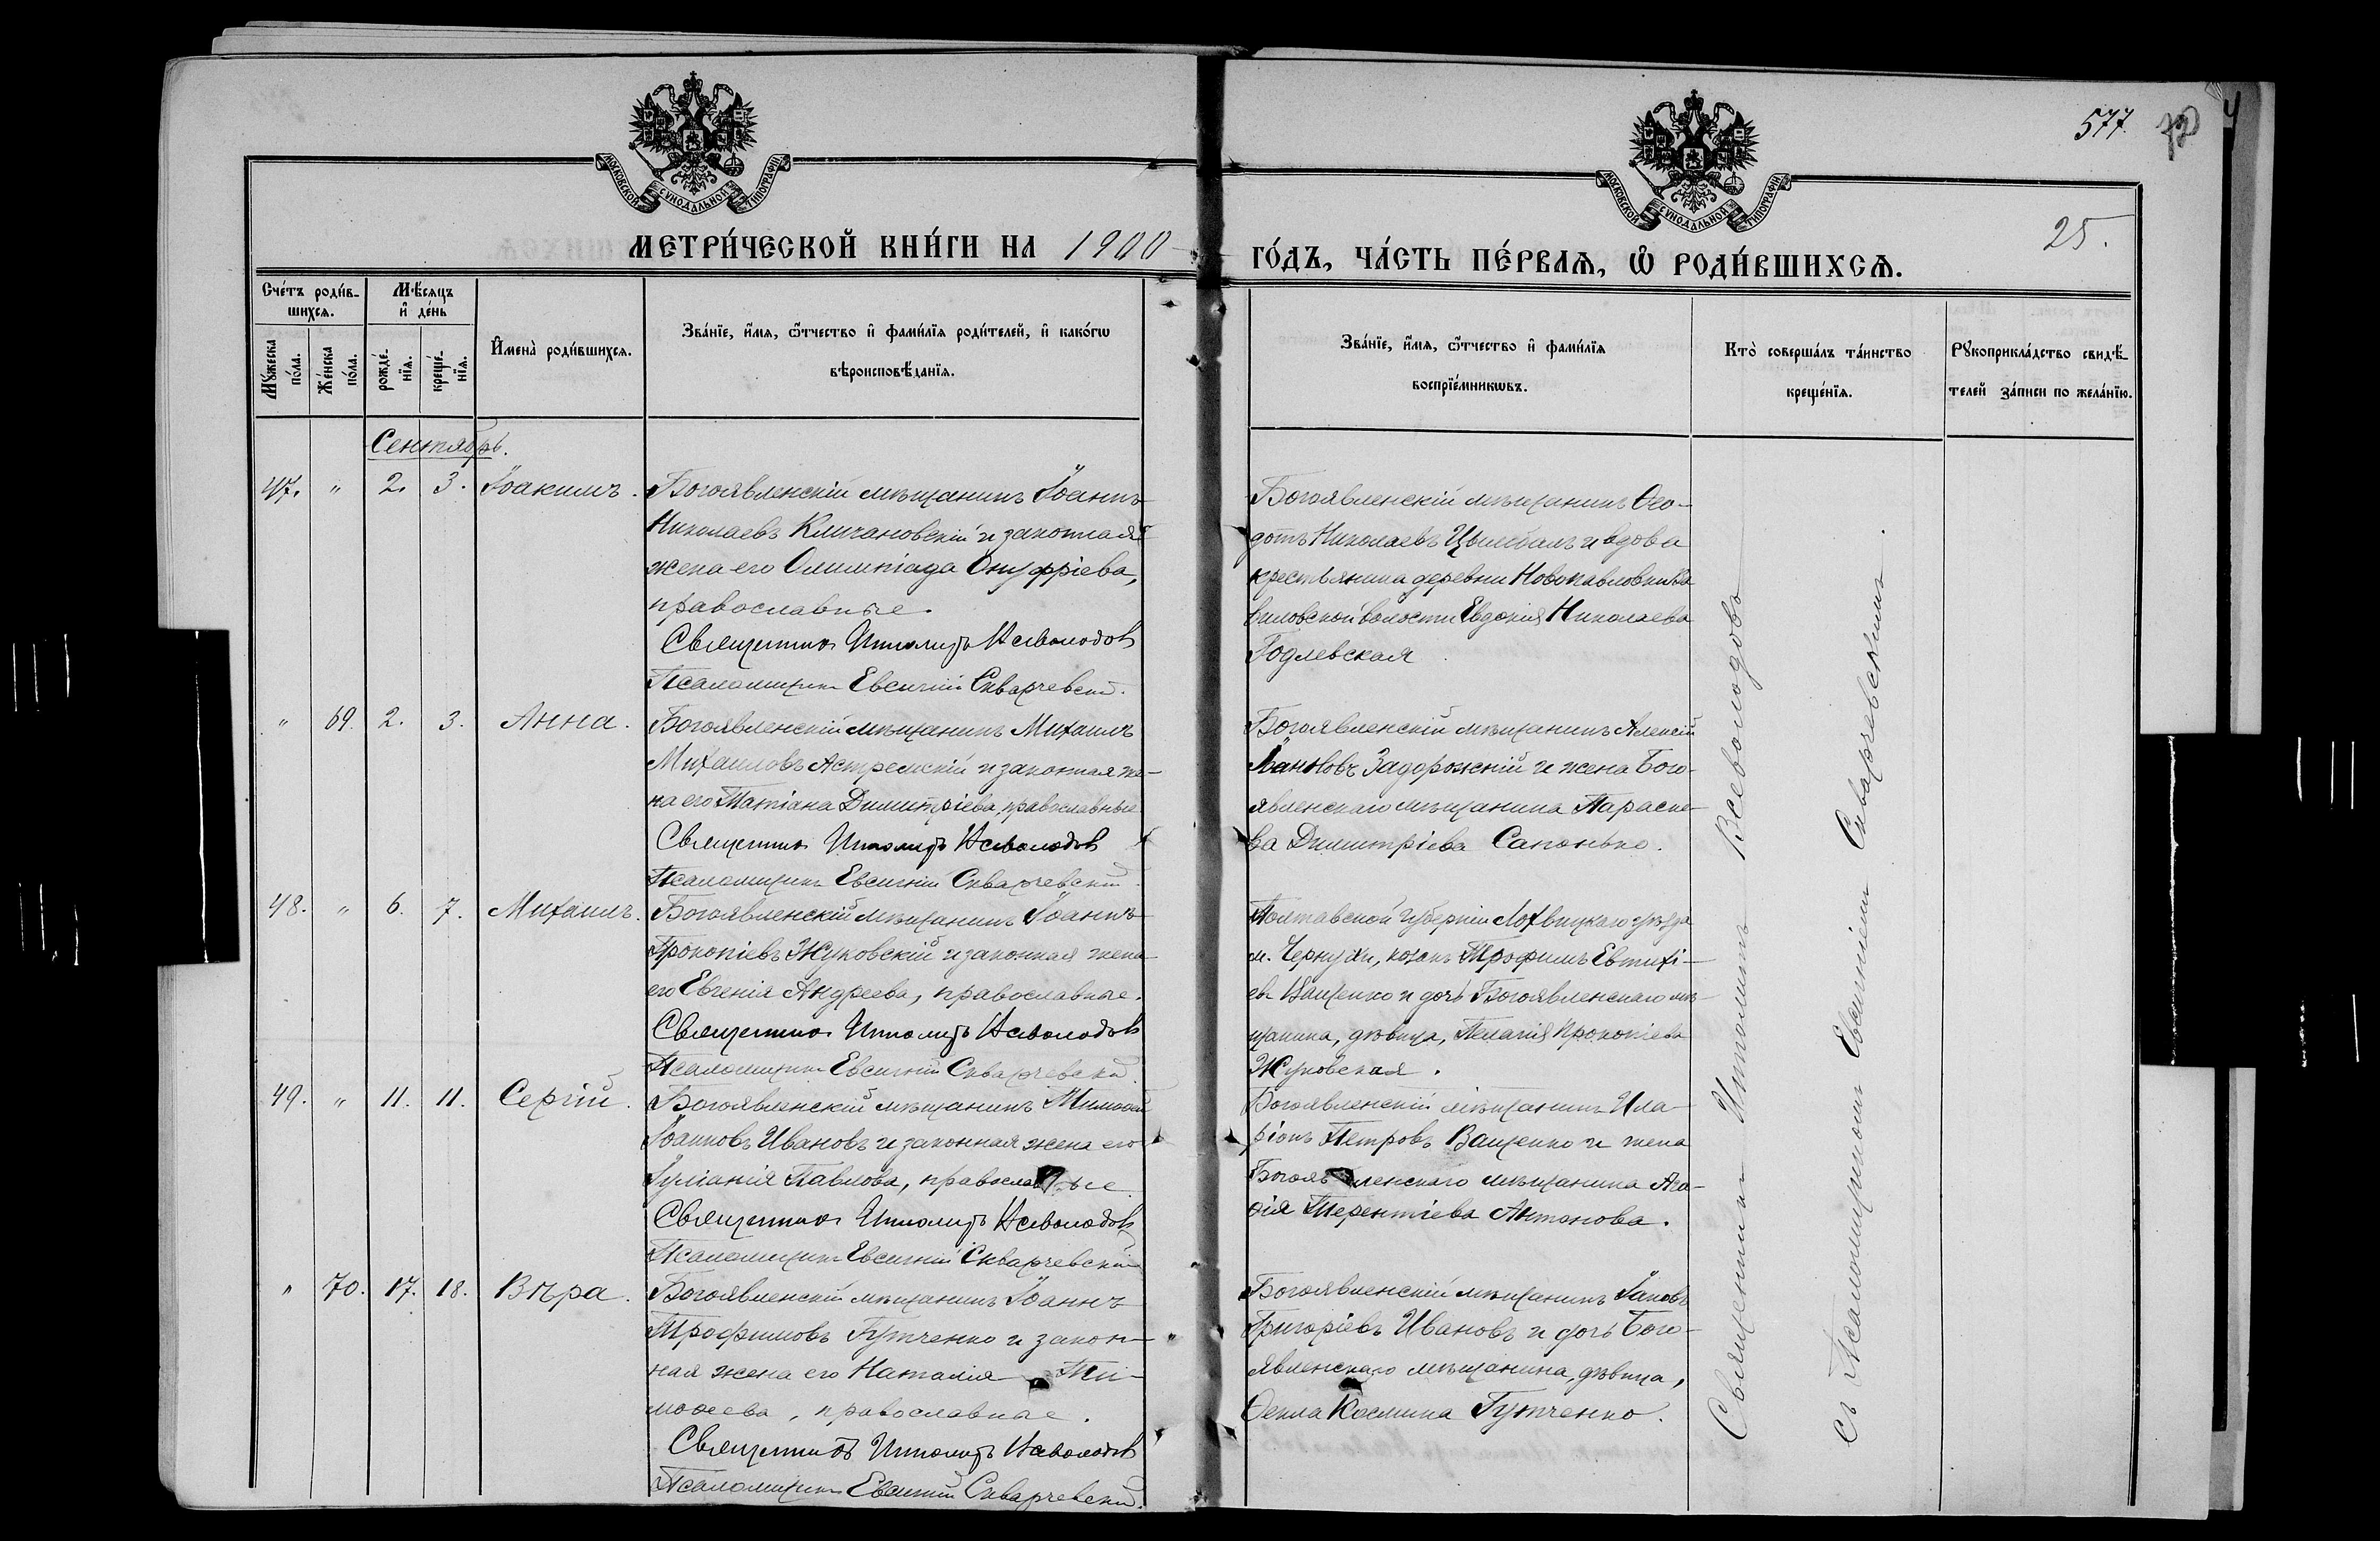 577.
25.
МОСКОВСКОЙ СУНОДАЛЬНОЙ ТИПОГРАФІИ
МОСКОВСКОЙ СУНОДАЛЬНОЙ ТИПОГРАФІИ
МЕТРИ́ЧЕСКОЙ КНИ́ГИ НА 1900
ГО́ДЪ, ЧА́СТЬ ПЕ́РВАѦ, Ѡ҆ РОДИ́ВШИХСѦ.
Сче́тъ роди́в-
шихсѧ.
Мꙋ́жеска
по́ла.
Же́нска
по́ла.
Мѣ́сяцъ
и҆ де́нь
рожде́-
нїѧ.
креще́-
нїѧ.
И҆мена̀ роди́вшихсѧ.
Зва́нїе, и҆́мѧ, ѻ҆́тчество и҆ фами́лїѧ роди́телей, и҆ како́гѡ
вѣроисповѣ́данїѧ.
Зва́нїе, и҆́мѧ, ѻ҆́тчество и҆ фами́лїѧ
воспрїе́мникѡвъ.
Кто̀ соверша́лъ та́инство
креще́нїѧ.
Рꙋкоприкла́дство свидѣ́-
телей за́писи по жела́нїю.
Сентябрь.
47. " 2. 3. Іоакимъ.
Богоявленскій мѣщанинъ Іоаннъ
Николаевъ Кличановскій и законная
жена его Олимпіада Онуфріева,
православные.
Священникъ Ипполитъ Всеволодовъ
Псаломщикъ Евсигній Скварчевскій.
Богоявленскій мѣщанинъ Ѳео-
дотъ Николаевъ Цымбалъ и вдова
крестьянина деревни Новопавловки
виловской волости Евдокія Николаева
Годлевская
" 69. 2. 3. Анна.
Богоявленскій мѣщанинъ Михаилъ
Михаиловъ Астремскій и законная же-
на его Татіана Димитріева, православные
Священникъ Ипполитъ Всеволодовъ
Псаломщикъ Евсигній Скварчевскій
Богоявленскій мѣщанинъ Алексій
Іоанновъ Задорожній и жена Бого-
явленскаго мѣщанина Параске-
ва Димитріева Сапонько.
48. " 6. 7. Михаилъ.
Богоявленскій мѣщанинъ Іоаннъ
Прокопіевъ Жуковскій и законная жена
его Евгенія Андреева, православные.
Священникъ Ипполитъ Всеволодовъ
Псаломщикъ Евсигній Скварчевскій
Полтавской губерніи Лохвицкаго уѣзда
м. Чернухи, козакъ Трофимъ Евтихі-
евъ Ващенко и дочь Богоявленскаго мѣ-
щанина, дѣвица, Пелагія Прокопіева
Жуковская.
49. " 11. 11. Сергій.
Богоявленскій мѣщанинъ Тимофей
Іоанновъ Ивановъ и законная жена его
Іуліанія Павлова, православные
Священникъ Ипполитъ Всеволодовъ
Псаломщикъ Евсигній Скварчевскій
Богоявленскій мѣщанинъ Ила-
ріонъ Петровъ Ващенко и жена
Богоявленскаго мѣщанина Ага-
ѳія Терентіева Антонова.
" 70. 17. 18. Вѣра.
Богоявленскій мѣщанинъ Іоаннъ
Трофимовъ Гутченко и закон-
ная жена его Наталія Ти-
моѳеева, православные.
Священникъ Ипполитъ Всеволодовъ
Псаломщикъ Евсигній Скварчевскій.
Богоявленскій мѣщанинъ Іаковъ
Григоріевъ Ивановъ и дочь Бого-
явленскаго мѣщанина, дѣвица,
Ѳекла Космина Гутченко.
Священникъ Ипполитъ Всеволодовъ
съ Псаломщикомъ Евсигніемъ Скварчевскимъ.